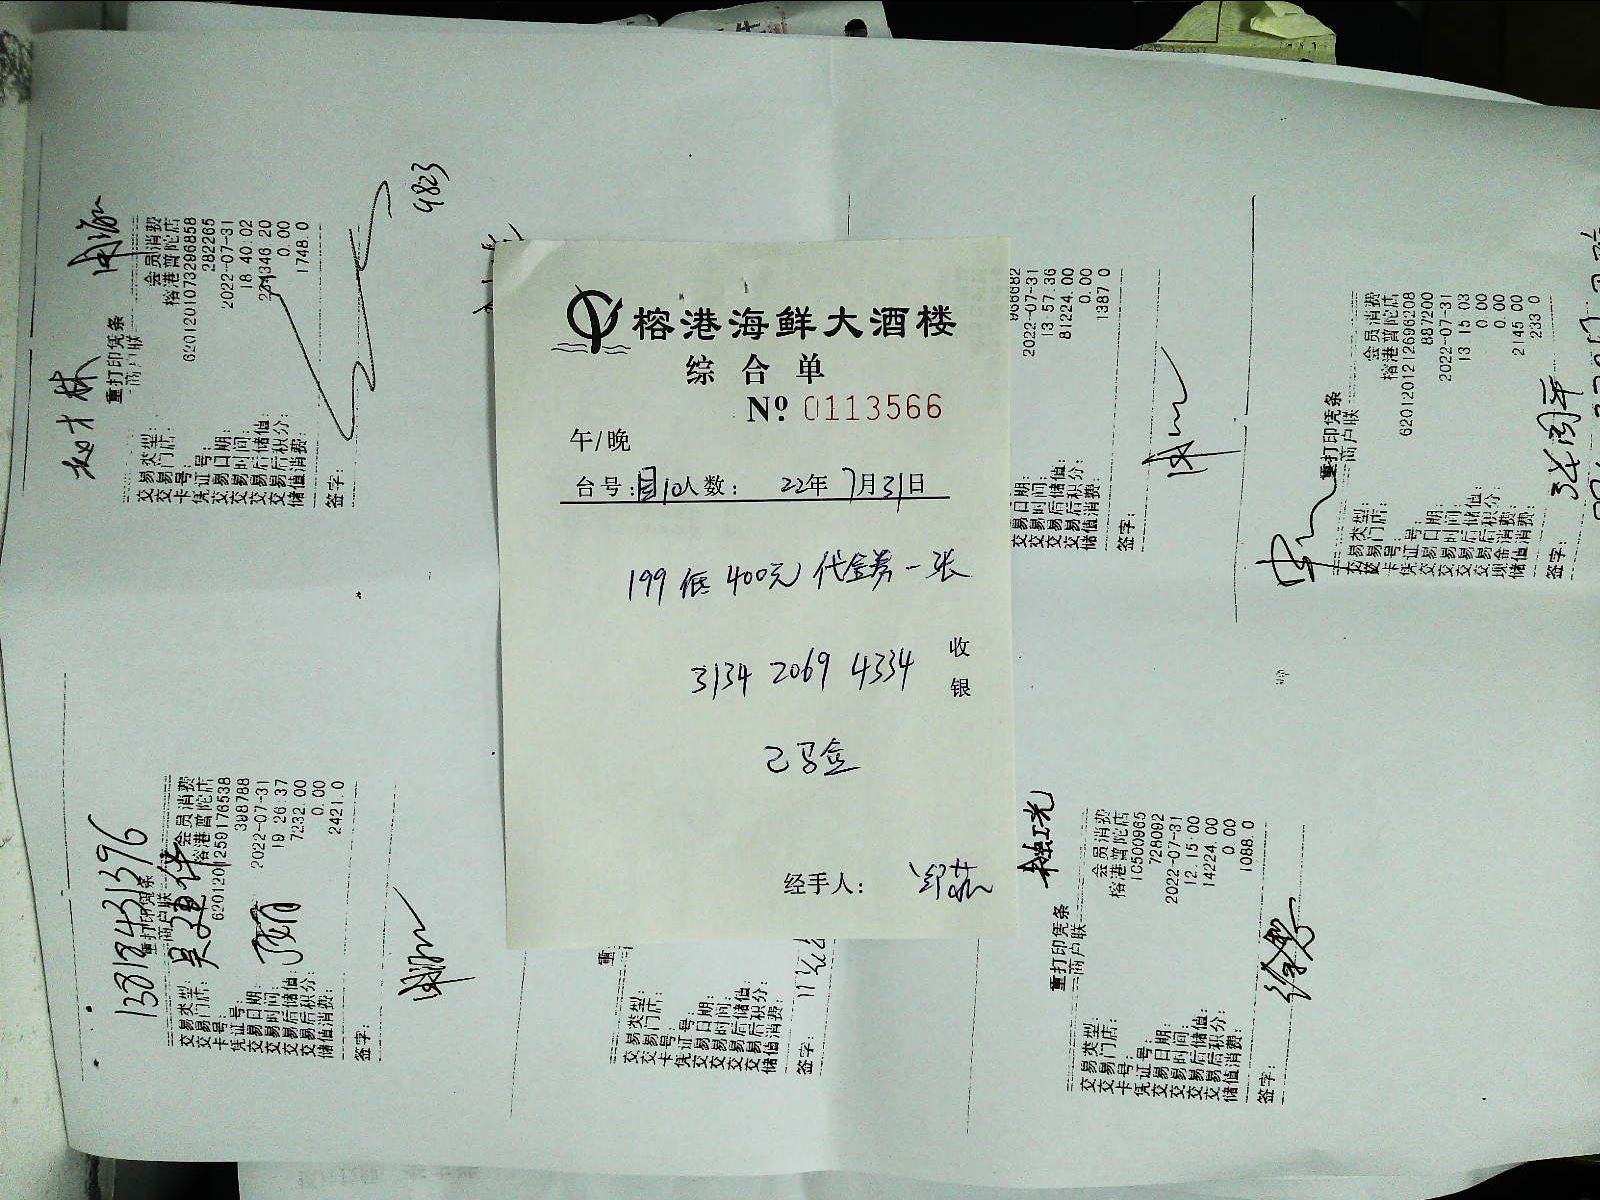 榕港海鲜大酒楼
综合单
No 0113566
午/晚
台号: 10 人数: 22年 7月 31日
199 抵 400元 代金券一张
3134 2069 4334
收
银
经手人:
9823
重打印凭条
商户联
交易类型: 会员消费
交易门店: 榕港普陀店
卡号: 6201201073296858
凭证号: 282265
交易日期: 2022-07-31
交易时间: 18 40.02
交易后储值: 234346 20
交易后积分: 0.00
储值消费: 1748.0
签字:
13818431396
吴建华
重打印凭条
商户联
交易类型: 会员消费
交易门店: 榕港普陀店
卡号: 6201201259176538
凭证号: 398788
交易日期: 2022-07-31
交易时间: 19 26 37
交易后储值: 7232.00
交易后积分: 0.00
储值消费: 2421.0
签字:
交易日期: 2022-07-31
交易时间: 13 57 36
交易后储值: 81224.00
交易后积分: 0.00
储值消费: 1387 0
签字:
重打印凭条
商户联
交易类型: 会员消费
交易门店: 榕港普陀店
卡号: 6201201212696208
凭证号: 887200
交易日期: 2022-07-31
交易时间: 13 15 03
交易后储值: 0 00
交易后积分: 0.00
现金消费: 2145 00
储值消费: 233 0
签字:
重
交易类型:
交易门店:
卡号:
凭证号:
交易日期:
交易时间:
交易后储值:
交易后积分:
储值消费:
签字:
重打印凭条
商户联
交易类型: 会员消费
交易门店: 榕港普陀店
卡号: 1C500965
凭证号: 728092
交易日期: 2022-07-31
交易时间: 12.15 00
交易后储值: 14224.00
交易后积分: 0.00
储值消费: 1088.0
签字: